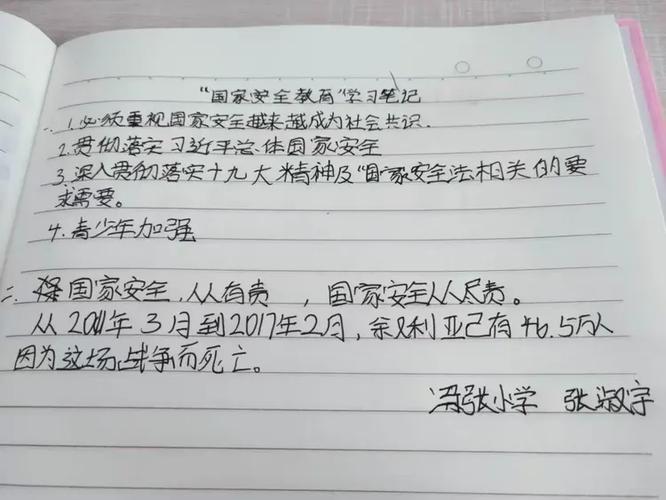 “国家安全教育”学习笔记
一、1.必须重视国家安全越来越成为社会共识.
2.贯彻落实习近平总体国家安全
3.深入贯彻落实十九大精神及“国家安全法相关的要
求需要。
4.青少年加强
二、国家安全,人人有责,国家安全人人尽责。
从2011年3月到2017年2月,叙利亚已有46.5万人
因为这场战争而死亡。
冯张小学 张淑宇